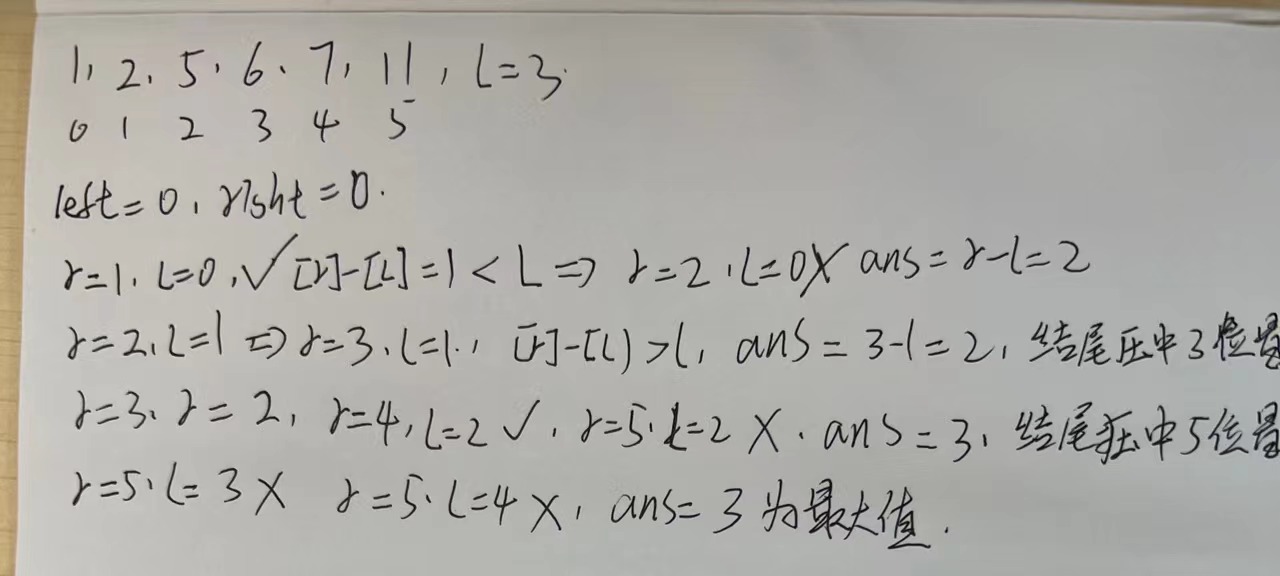 1, 2, 5, 6, 7, 11, L=3.
0 1 2 3 4 5
left=0, right=0.
r=1, L=0, ✓ [r]-[L]=1 < L ⇒ r=2, L=0 X ans=r-l=2
r=2, L=1 ⇒ r=3, L=1, [r]-[L]>l, ans=3-1=2, 结尾压中3位置
r=3, r=2, r=4, L=2 ✓, r=5, L=2 X, ans=3, 结尾压中5位置
r=5, L=3 X r=5, L=4 X, ans=3 为最大值.